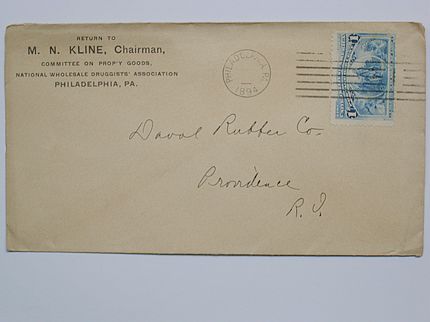 RETURN TO
M. N. KLINE, Chairman,
COMMITTEE ON PROP'Y GOODS,
NATIONAL WHOLESALE DRUGGISTS' ASSOCIATION
PHILADELPHIA, PA.
PHILADELPHIA, PA.
1894
1 1
Davol Rubber Co.
Providence
R. I.